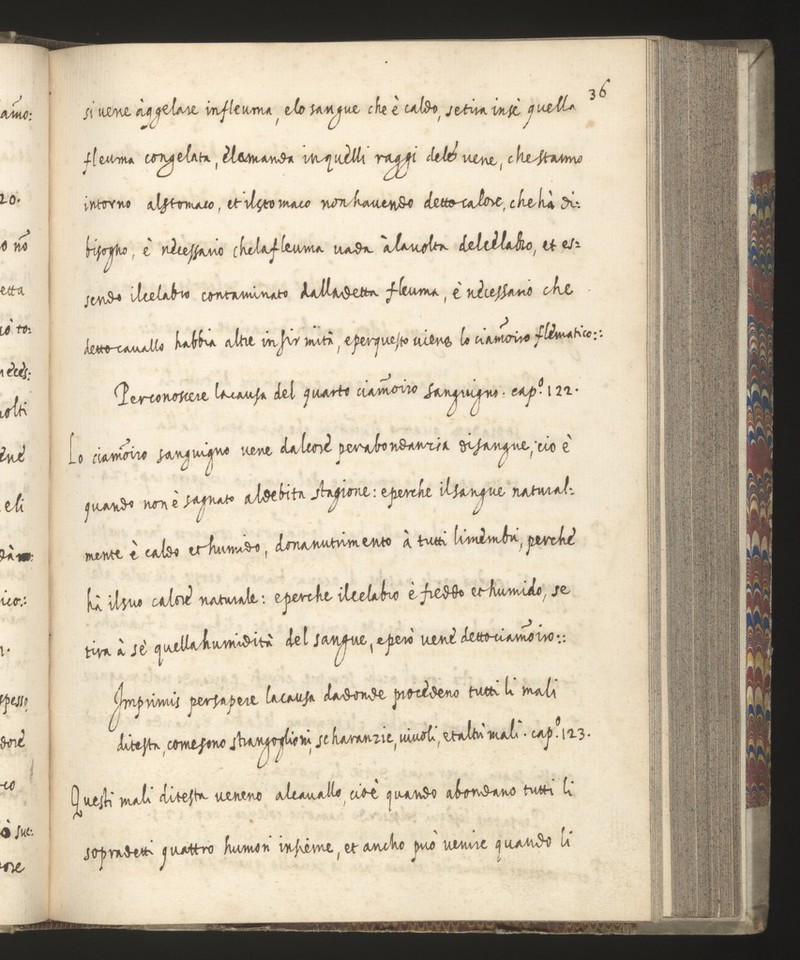 36
si uene àggelare infleuma, elo sangue che è caldo, setira insè quella
fleuma congelata, èlamanda inquelli raggi dele uene, chestanno
intorno alstomaco, et ilstomaco non hauendo detto calore, che hà di=
bisogno, è necessario chelafleuma uada àlauolta delcelabro, et es=
sendo ilcelabro contaminato dalladetta fleuma, è necessario che
detto cauallo habbia altre infirmità, eperquesto uiene lo ciamoiro flematico::
Perconoscere lacausa del quarto ciamoiro sanguigno. cap.º 122.
Lo ciamoiro sanguigno uene dalcore perabondanzia disangue, cio è
quando non è sagnato aldebita stagione: eperche ilsangue natural=
mente è caldo et humido, donanutrimento à tutti limembri, perche
hà ilsuo calore naturale: eperche ilcelabro è freddo et humido, se
tira à sè quella humidità del sangue, eperò uene detto ciamoiro::
Imprimis persapere lacausa dadonde procedeno tutti li mali
ditesta, comesono strangoglioni, scharanzie, uiuoli, et altri mali. cap.º 123.
Questi mali ditesta ueneno alcauallo, cioè quando abondano tutti li
sopradetti quattro humori insieme, et ancho può uenire quando li